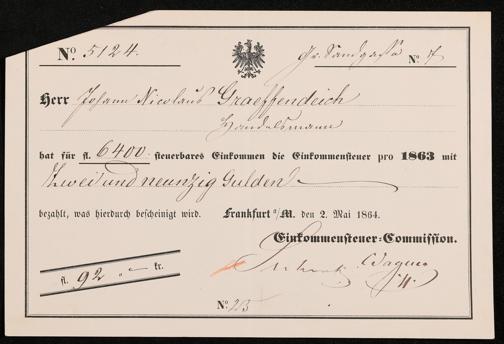 No. 5124.
Gr. Sandgasse No. 7
Herr Johann Nicolaus Graeffendeich
Handelsmann
hat für fl. 6400. steuerbares Einkommen die Einkommensteuer pro 1863 mit
Zwei und neunzig Gulden
bezahlt, was hierdurch bescheinigt wird. Frankfurt a/M. den 2. Mai 1864.
Einkommensteuer-Commission.
Wagner
fl. 92 „ — kr.
No. 23